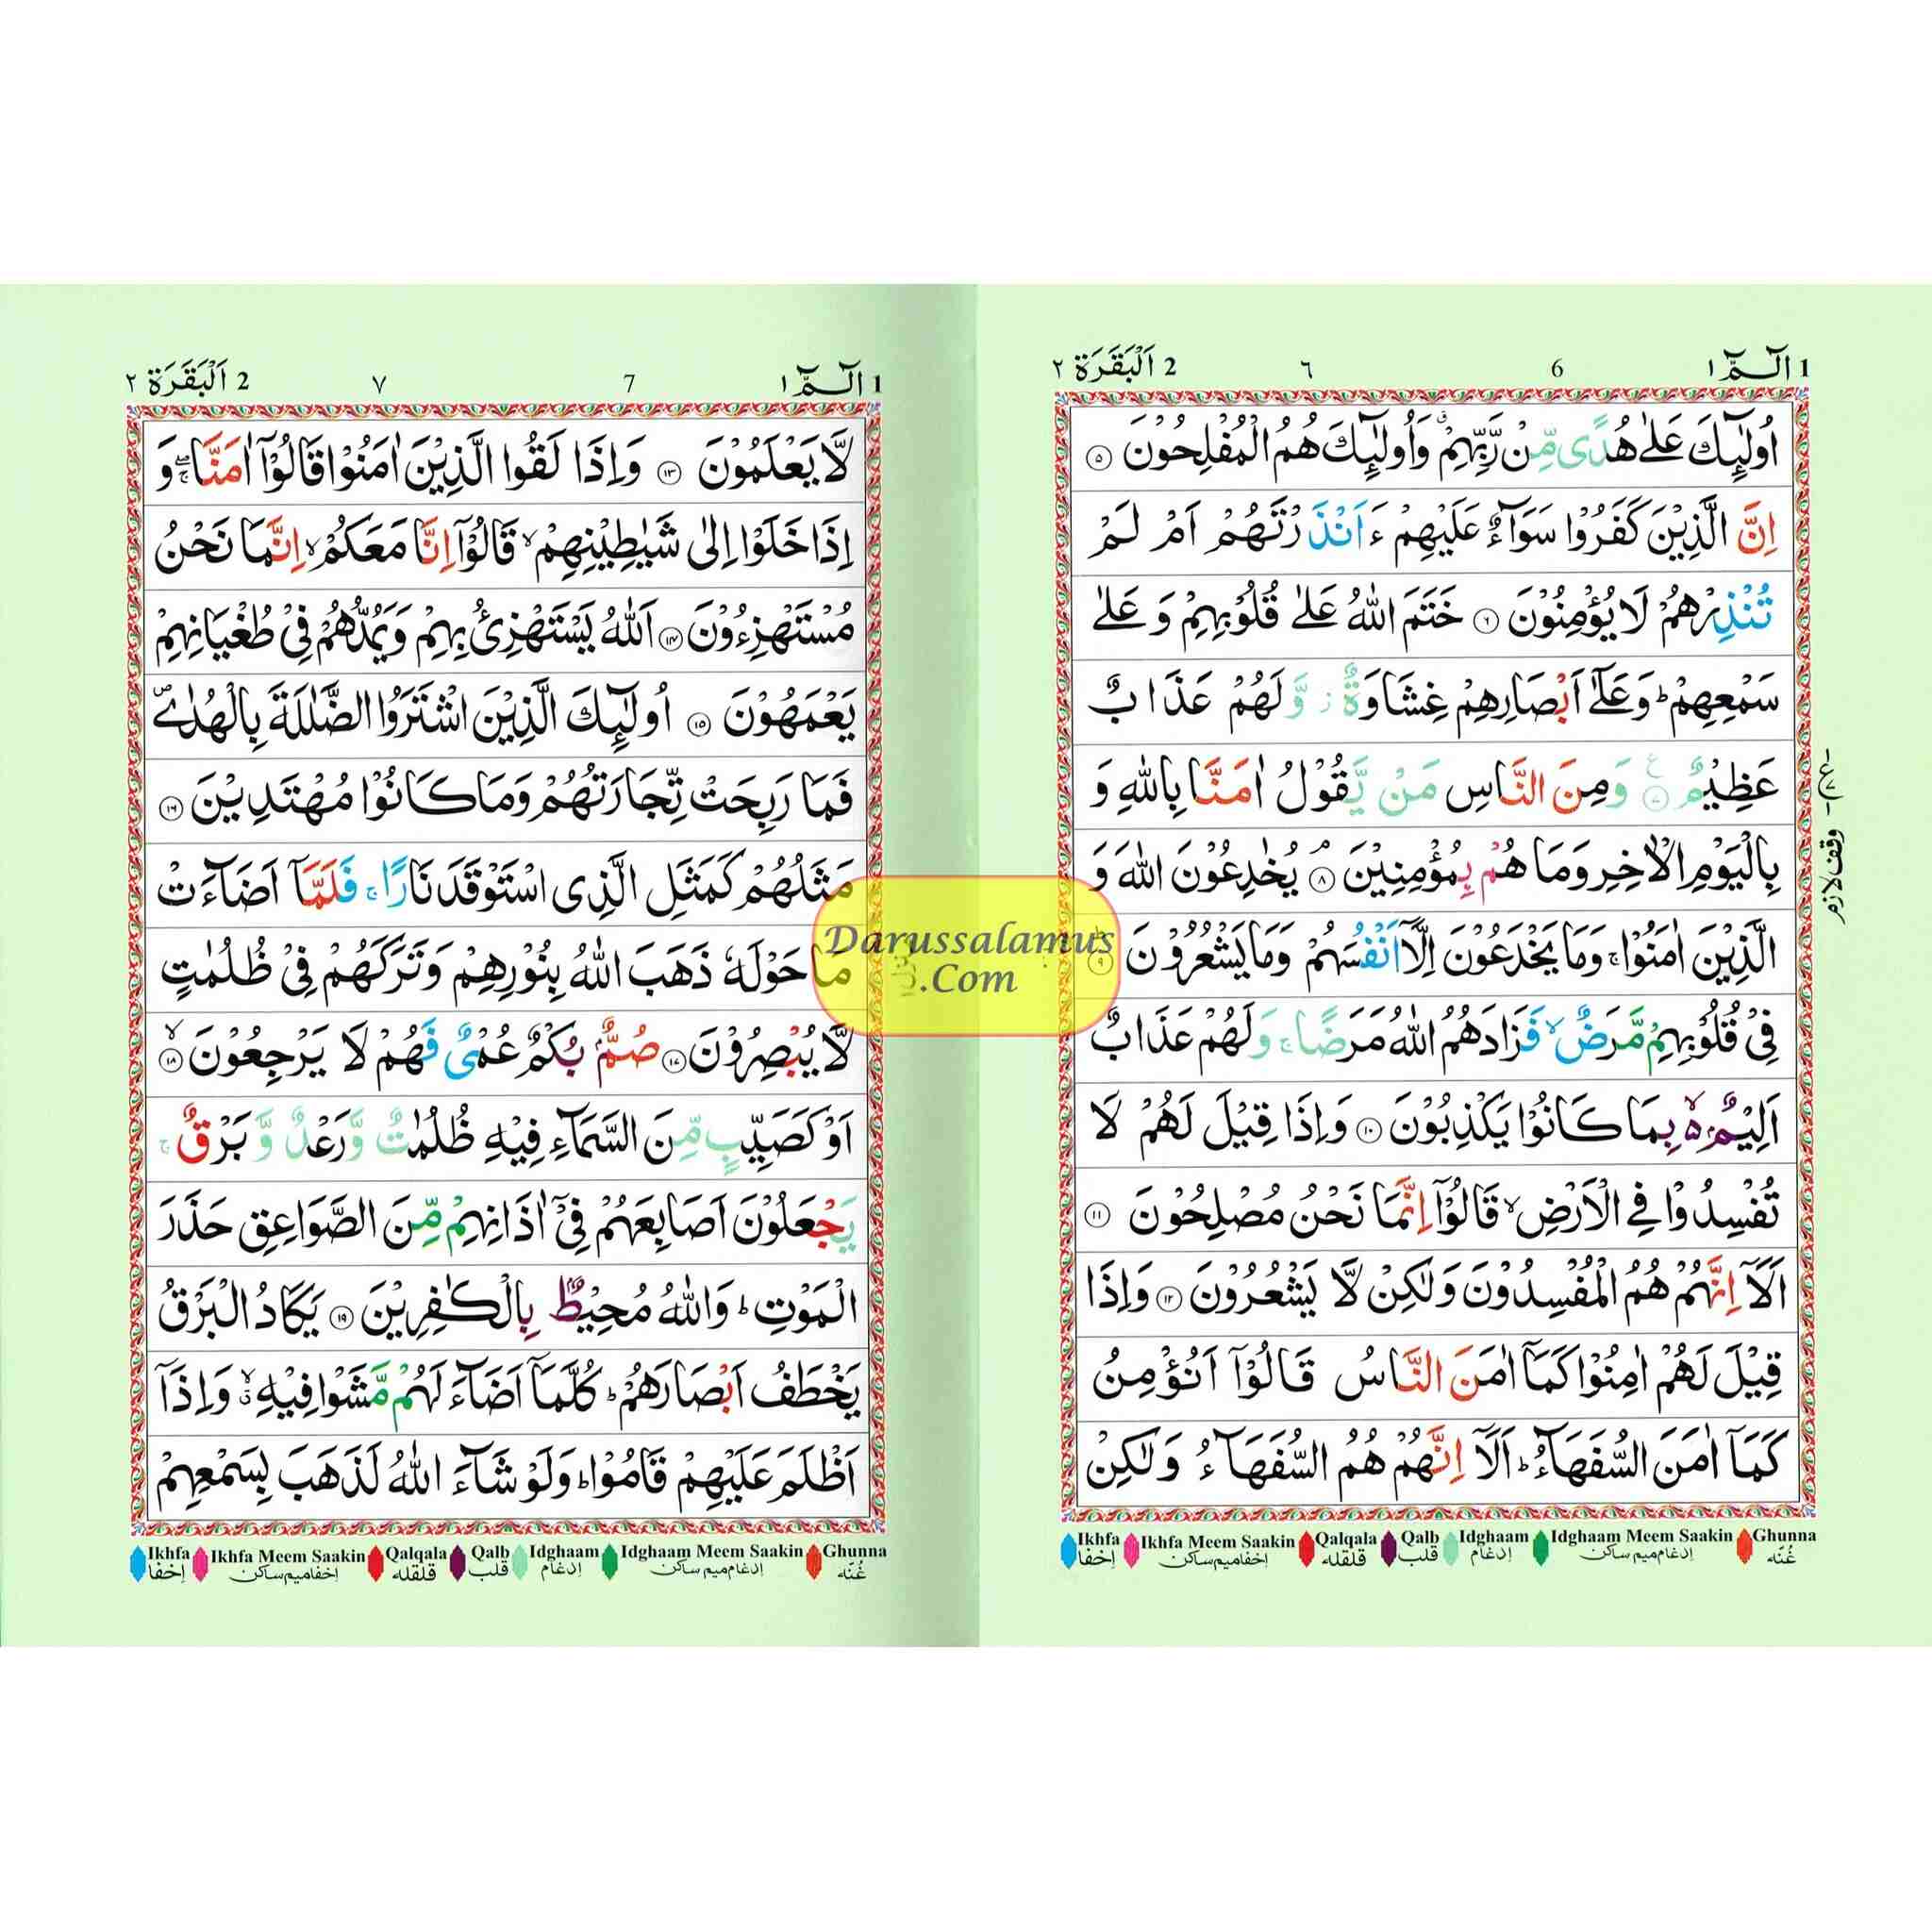 1 الٓـمّٓ ١ 6 ٦ 2 اَلْبَقَرَة ٢
اُولٰٓئِكَ عَلٰى هُدًى مِّنْ رَّبِّهِمْ ۗ وَاُولٰٓئِكَ هُمُ الْمُفْلِحُوْنَ ٥
اِنَّ الَّذِيْنَ كَفَرُوْا سَوَآءٌ عَلَيْهِمْ ءَاَنْذَرْتَهُمْ اَمْ لَمْ
تُنْذِرْهُمْ لَا يُؤْمِنُوْنَ ٦ خَتَمَ اللّٰهُ عَلٰى قُلُوْبِهِمْ وَعَلٰى
سَمْعِهِمْ ؕ وَعَلٰٓى اَبْصَارِهِمْ غِشَاوَةٌ ز وَّلَهُمْ عَذَابٌ
عَظِيْمٌ ٧ ع وَمِنَ النَّاسِ مَنْ يَّقُوْلُ اٰمَنَّا بِاللّٰهِ وَ
بِالْيَوْمِ الْاٰخِرِ وَمَا هُمْ بِمُؤْمِنِيْنَ ۘ ٨ يُخٰدِعُوْنَ اللّٰهَ وَ
الَّذِيْنَ اٰمَنُوْا ۚ وَمَا يَخْدَعُوْنَ اِلَّآ اَنْفُسَهُمْ وَمَا يَشْعُرُوْنَ ٩
فِيْ قُلُوْبِهِمْ مَّرَضٌ ۙ فَزَادَهُمُ اللّٰهُ مَرَضًا ۚ وَلَهُمْ عَذَابٌ
اَلِيْمٌۢ ۙ بِمَا كَانُوْا يَكْذِبُوْنَ ١٠ وَاِذَا قِيْلَ لَهُمْ لَا
تُفْسِدُوْا فِي الْاَرْضِ ۙ قَالُوْٓا اِنَّمَا نَحْنُ مُصْلِحُوْنَ ١١
اَلَآ اِنَّهُمْ هُمُ الْمُفْسِدُوْنَ وَلٰكِنْ لَّا يَشْعُرُوْنَ ١٢ وَاِذَا
قِيْلَ لَهُمْ اٰمِنُوْا كَمَآ اٰمَنَ النَّاسُ قَالُوْٓا اَنُؤْمِنُ
كَمَآ اٰمَنَ السُّفَهَآءُ ؕ اَلَآ اِنَّهُمْ هُمُ السُّفَهَآءُ وَلٰكِنْ
ع
وقف لازم
Ikhfa Ikhfa Meem Saakin Qalqala Qalb Idghaam Idghaam Meem Saakin Ghunna
اِخفا اِخفا میم ساکن قلقله قلب اِدغام اِدغام میم ساکن غُنّه
1 الٓـمّٓ ١ 7 ٧ 2 اَلْبَقَرَة ٢
لَّا يَعْلَمُوْنَ ١٣ وَاِذَا لَقُوا الَّذِيْنَ اٰمَنُوْا قَالُوْٓا اٰمَنَّا ۚۖ وَ
اِذَا خَلَوْا اِلٰى شَيٰطِيْنِهِمْ ۙ قَالُوْٓا اِنَّا مَعَكُمْ ۙ اِنَّمَا نَحْنُ
مُسْتَهْزِءُوْنَ ١٤ اَللّٰهُ يَسْتَهْزِئُ بِهِمْ وَيَمُدُّهُمْ فِيْ طُغْيَانِهِمْ
يَعْمَهُوْنَ ١٥ اُولٰٓئِكَ الَّذِيْنَ اشْتَرَوُا الضَّلٰلَةَ بِالْهُدٰى ۪
فَمَا رَبِحَتْ تِّجَارَتُهُمْ وَمَا كَانُوْا مُهْتَدِيْنَ ١٦
مَثَلُهُمْ كَمَثَلِ الَّذِى اسْتَوْقَدَ نَارًا ۚ فَلَمَّآ اَضَآءَتْ
مَا حَوْلَهٗ ذَهَبَ اللّٰهُ بِنُوْرِهِمْ وَتَرَكَهُمْ فِيْ ظُلُمٰتٍ
لَّا يُبْصِرُوْنَ ١٧ صُمٌّۢ بُكْمٌ عُمْيٌ فَهُمْ لَا يَرْجِعُوْنَ ۙ ١٨
اَوْ كَصَيِّبٍ مِّنَ السَّمَآءِ فِيْهِ ظُلُمٰتٌ وَّرَعْدٌ وَّبَرْقٌ ۚ
يَجْعَلُوْنَ اَصَابِعَهُمْ فِيْٓ اٰذَانِهِمْ مِّنَ الصَّوَاعِقِ حَذَرَ
الْمَوْتِ ؕ وَاللّٰهُ مُحِيْطٌۢ بِالْكٰفِرِيْنَ ١٩ يَكَادُ الْبَرْقُ
يَخْطَفُ اَبْصَارَهُمْ ؕ كُلَّمَآ اَضَآءَ لَهُمْ مَّشَوْا فِيْهِ ۙ وَاِذَآ
اَظْلَمَ عَلَيْهِمْ قَامُوْا ؕ وَلَوْ شَآءَ اللّٰهُ لَذَهَبَ بِسَمْعِهِمْ
Ikhfa Ikhfa Meem Saakin Qalqala Qalb Idghaam Idghaam Meem Saakin Ghunna
اِخفا اِخفا میم ساکن قلقله قلب اِدغام اِدغام میم ساکن غُنّه
Darussalamus
.Com